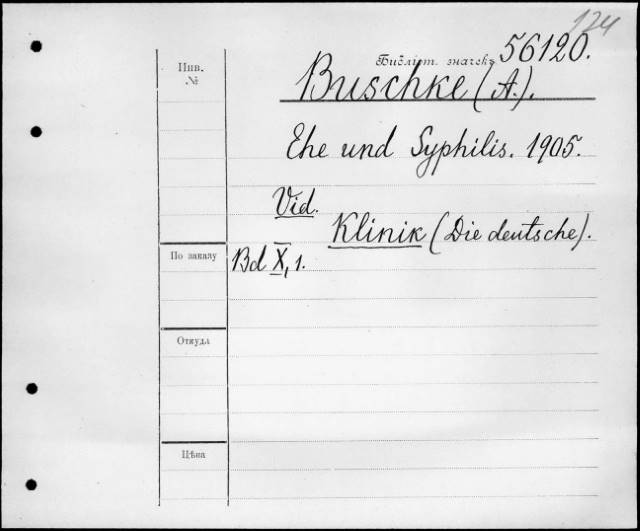 124
Инв. №
Библіот. значекъ 56120.
Buschke (A.).
Ehe und Syphilis. 1905.
Vid.
Klinik (Die deutsche).
По заказу
Bd X, 1.
Откуда
Цѣна